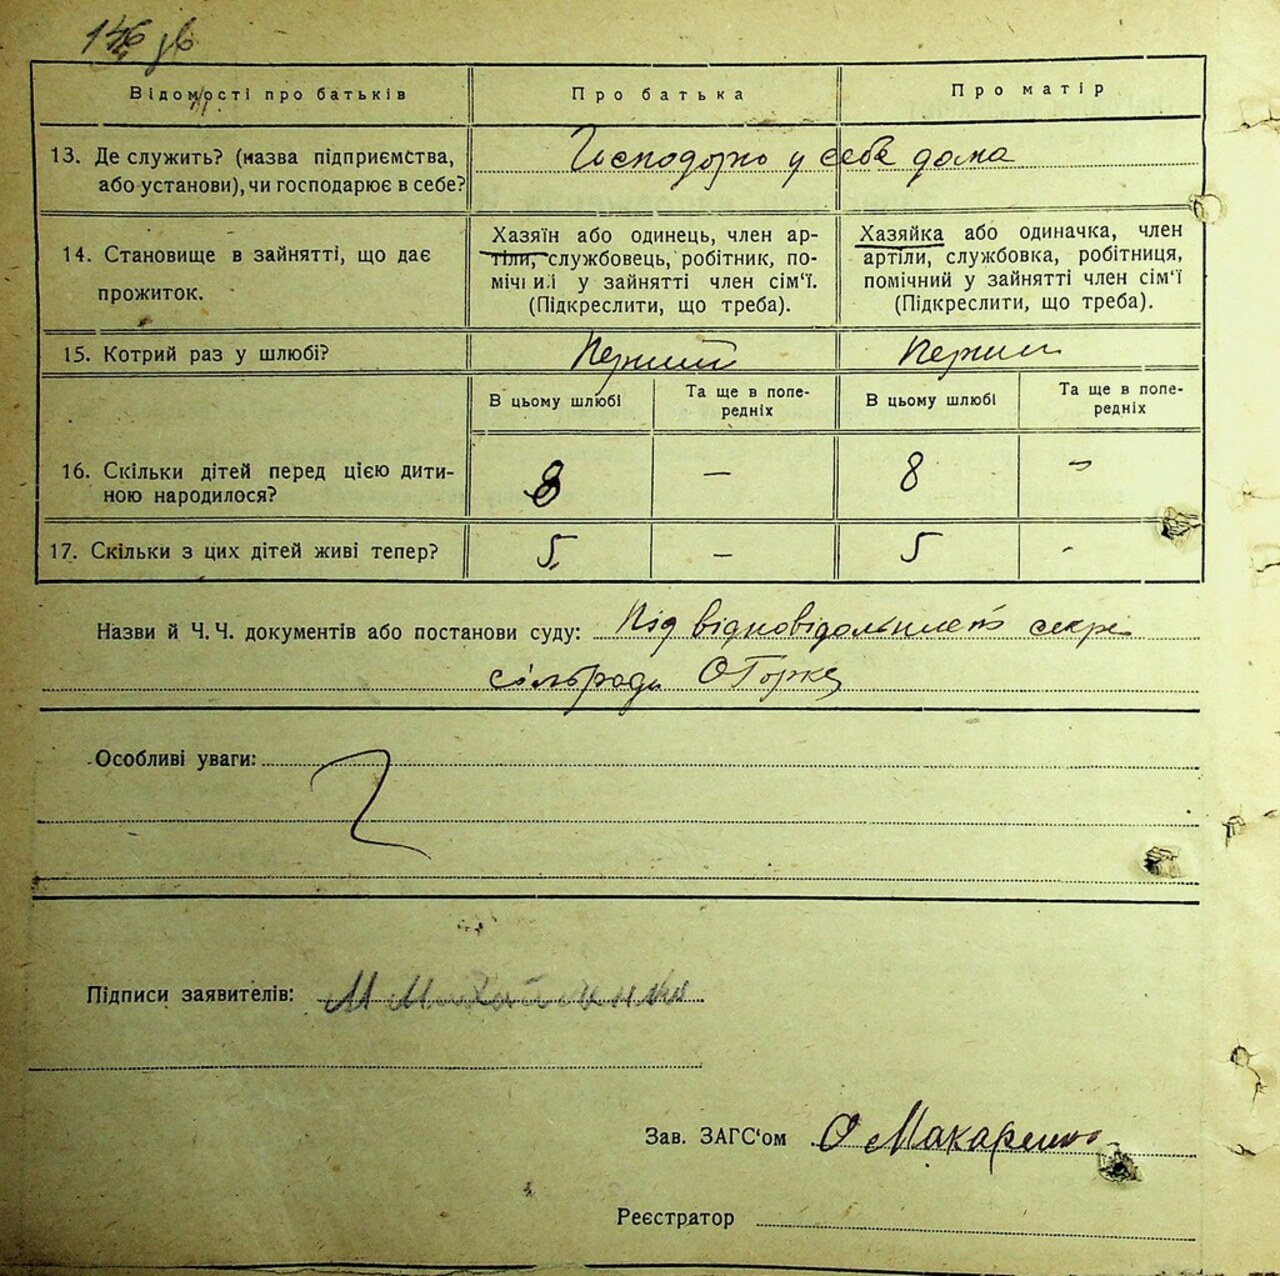 146 зв
Відомості про батьків
Про батька
Про матір
13. Де служить? (назва підприємства,
або установи), чи господарює в себе?
у себе дома
14. Становище в зайнятті, що дає
прожиток.
Хазяїн або одинець, член ар-
тіли, службовець, робітник, по-
мічний у зайнятті член сім'ї.
(Підкреслити, що треба).
Хазяйка або одиначка, член
артіли, службовка, робітниця,
помічний у зайнятті член сім'ї
(Підкреслити, що треба).
15. Котрий раз у шлюбі?
Перший
Перший
В цьому шлюбі
Та ще в попе-
редніх
В цьому шлюбі
Та ще в попе-
редніх
16. Скільки дітей перед цією дити-
ною народилося?
8
—
8
—
17. Скільки з цих дітей живі тепер?
5
—
5
-
Назви й Ч. Ч. документів або постанови суду: Під секре
сільради
Особливі уваги:
Підписи заявителів: М
Зав. ЗАГС'ом О Макаренко
Реєстратор